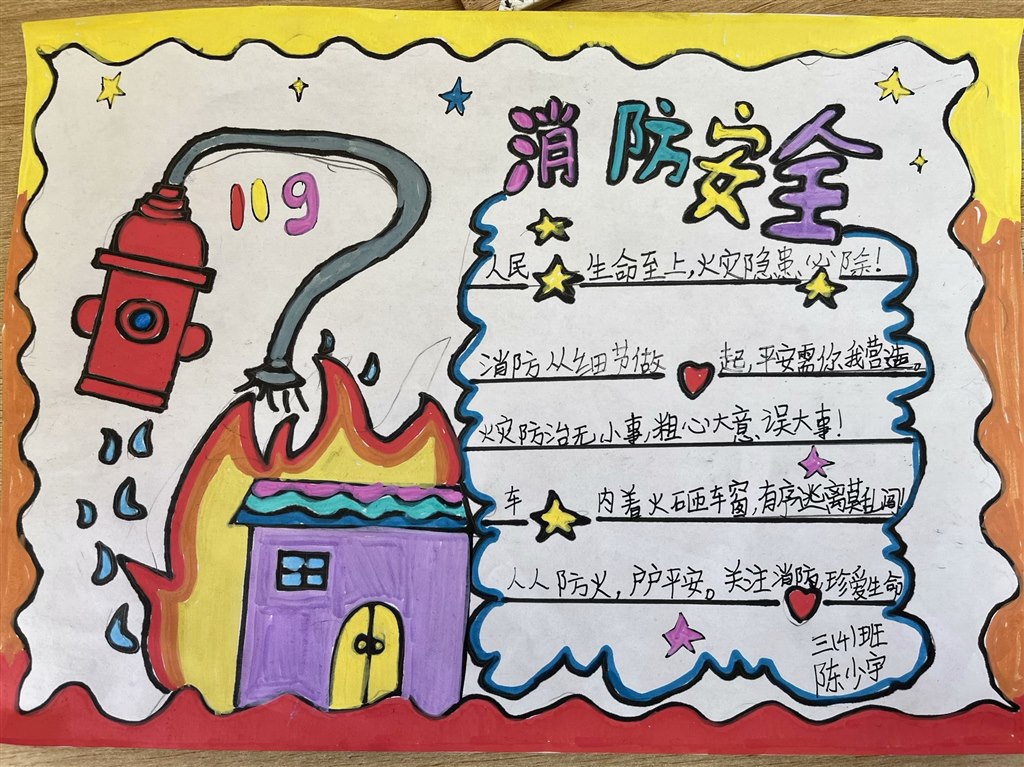 消防安全
119
人民生命至上,火灾隐患必除!
消防从细节做起,平安需你我营造。
火灾防治无小事,粗心大意误大事!
车内着火石砸车窗,有序逃离莫乱闯!
人人防火,户户平安。关注消防,珍爱生命
三(4)班
陈少宇